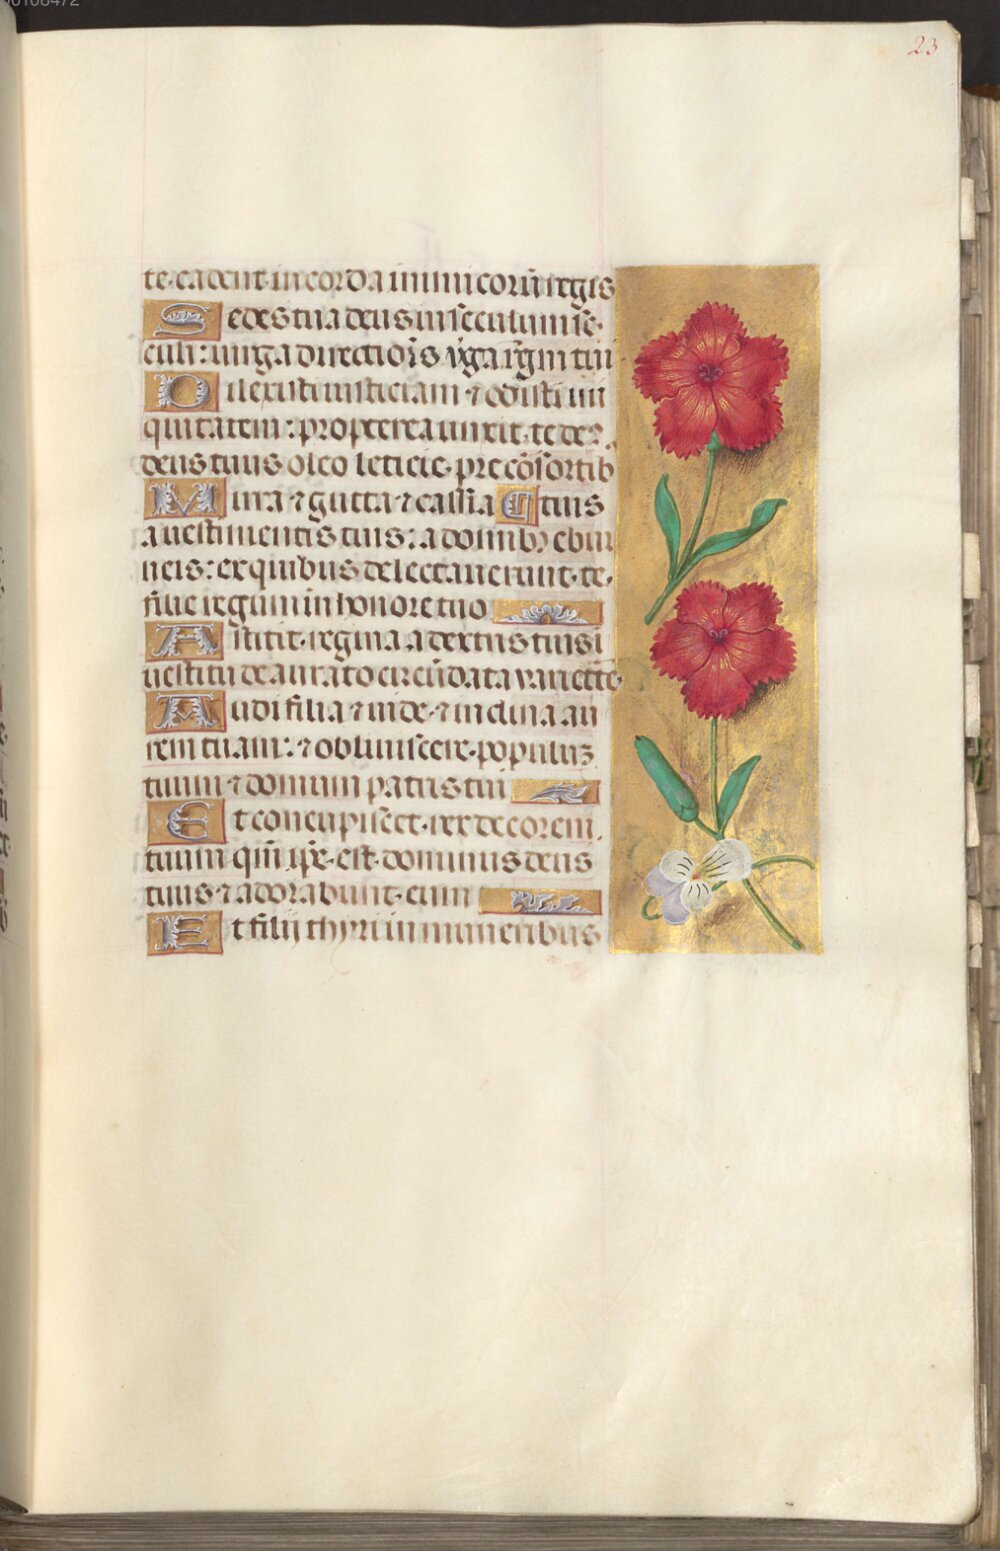 00108472
23
te cadent in corda inimicorū regis
Sedes tua deus in seculum se
culi: uirga directiōis ūga rḡni tui
Dilexisti iusticiam ⁊ odisti ini
quitatem: propterea unxit te de
deus tuus oleo leticie pre cōsortib
Mirra ⁊ gutta ⁊ cassia a tuis
a uestimentis tuis: a domibꝫ ebur
neis: ex quibus delectauerunt te
filie regum in honore tuo
Astitit regina a dextris tuis i
uestitu deaurato circūdata varietate
Audi filia ⁊ uide ⁊ inclina au
rem tuam: ⁊ obliuiscere populuꝫ
tuum ⁊ domum patris tui
Et concupiscet rex decorem
tuum qm̄ ip̄e est dominus deus
tuus ⁊ adorabunt eum
Et filij thyri in muneribus